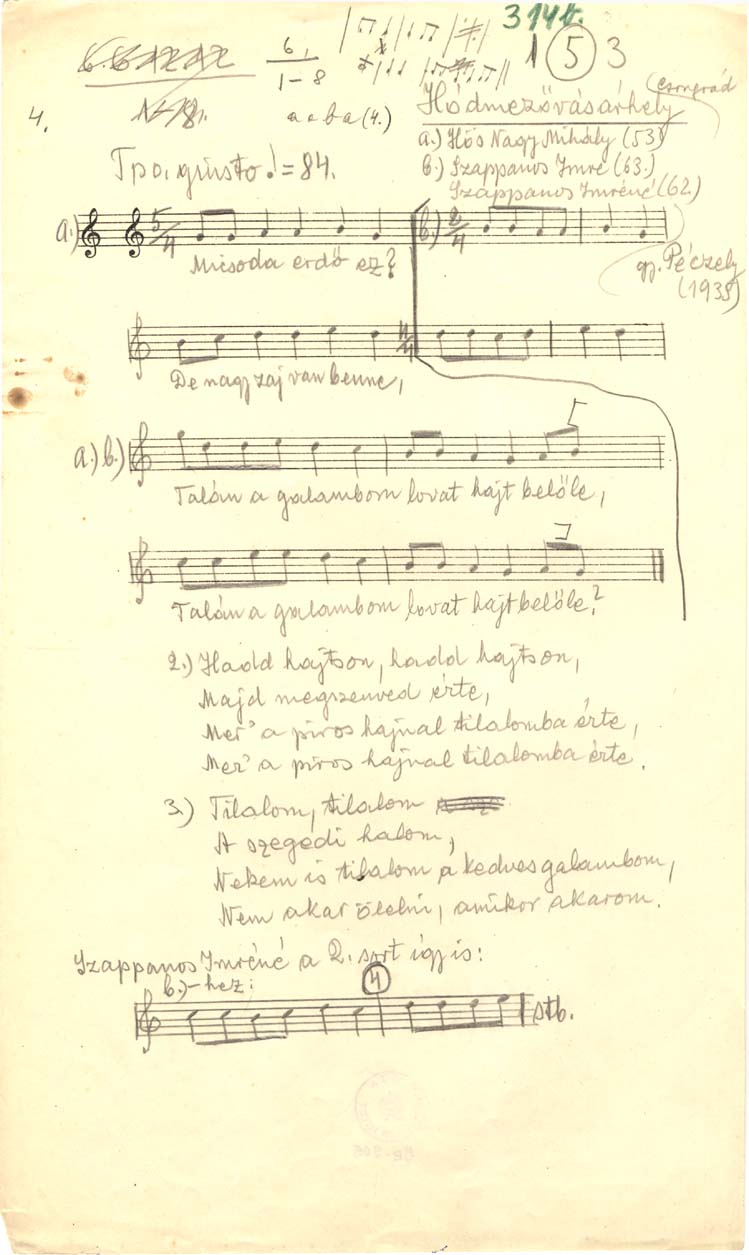 314t.
6,
1–8
1 5 3
4.
(Csongrád
Hódmezővásárhely
a.) Hős Nagy Mihály (53)
b.) Szappanos Imre (63.)
Szappanos Imréné (62.)
gy. Péczely
(1938)
Tpo. giusto ♩ = 84.
a.) 5/4 b.) 2/4
Micsoda erdő ez?
4/4
De nagy zaj van benne,
a.) b.)
Talán a galambom lovat hajt belőle,
Talán a galambom lovat hajt belőle?
2.) Hadd hajtson, hadd hajtson,
Majd megszenved érte,
Mer' a piros hajnal tilalomba érte,
Mer' a piros hajnal tilalomba érte.
3.) Tilalom, tilalom
A szegedi halom,
Nekem is tilalom a kedves galambom,
Nem akar ölelni, amikor akarom.
Szappanos Imréné a 2. sort így is:
b.)-hez:
4
stb.